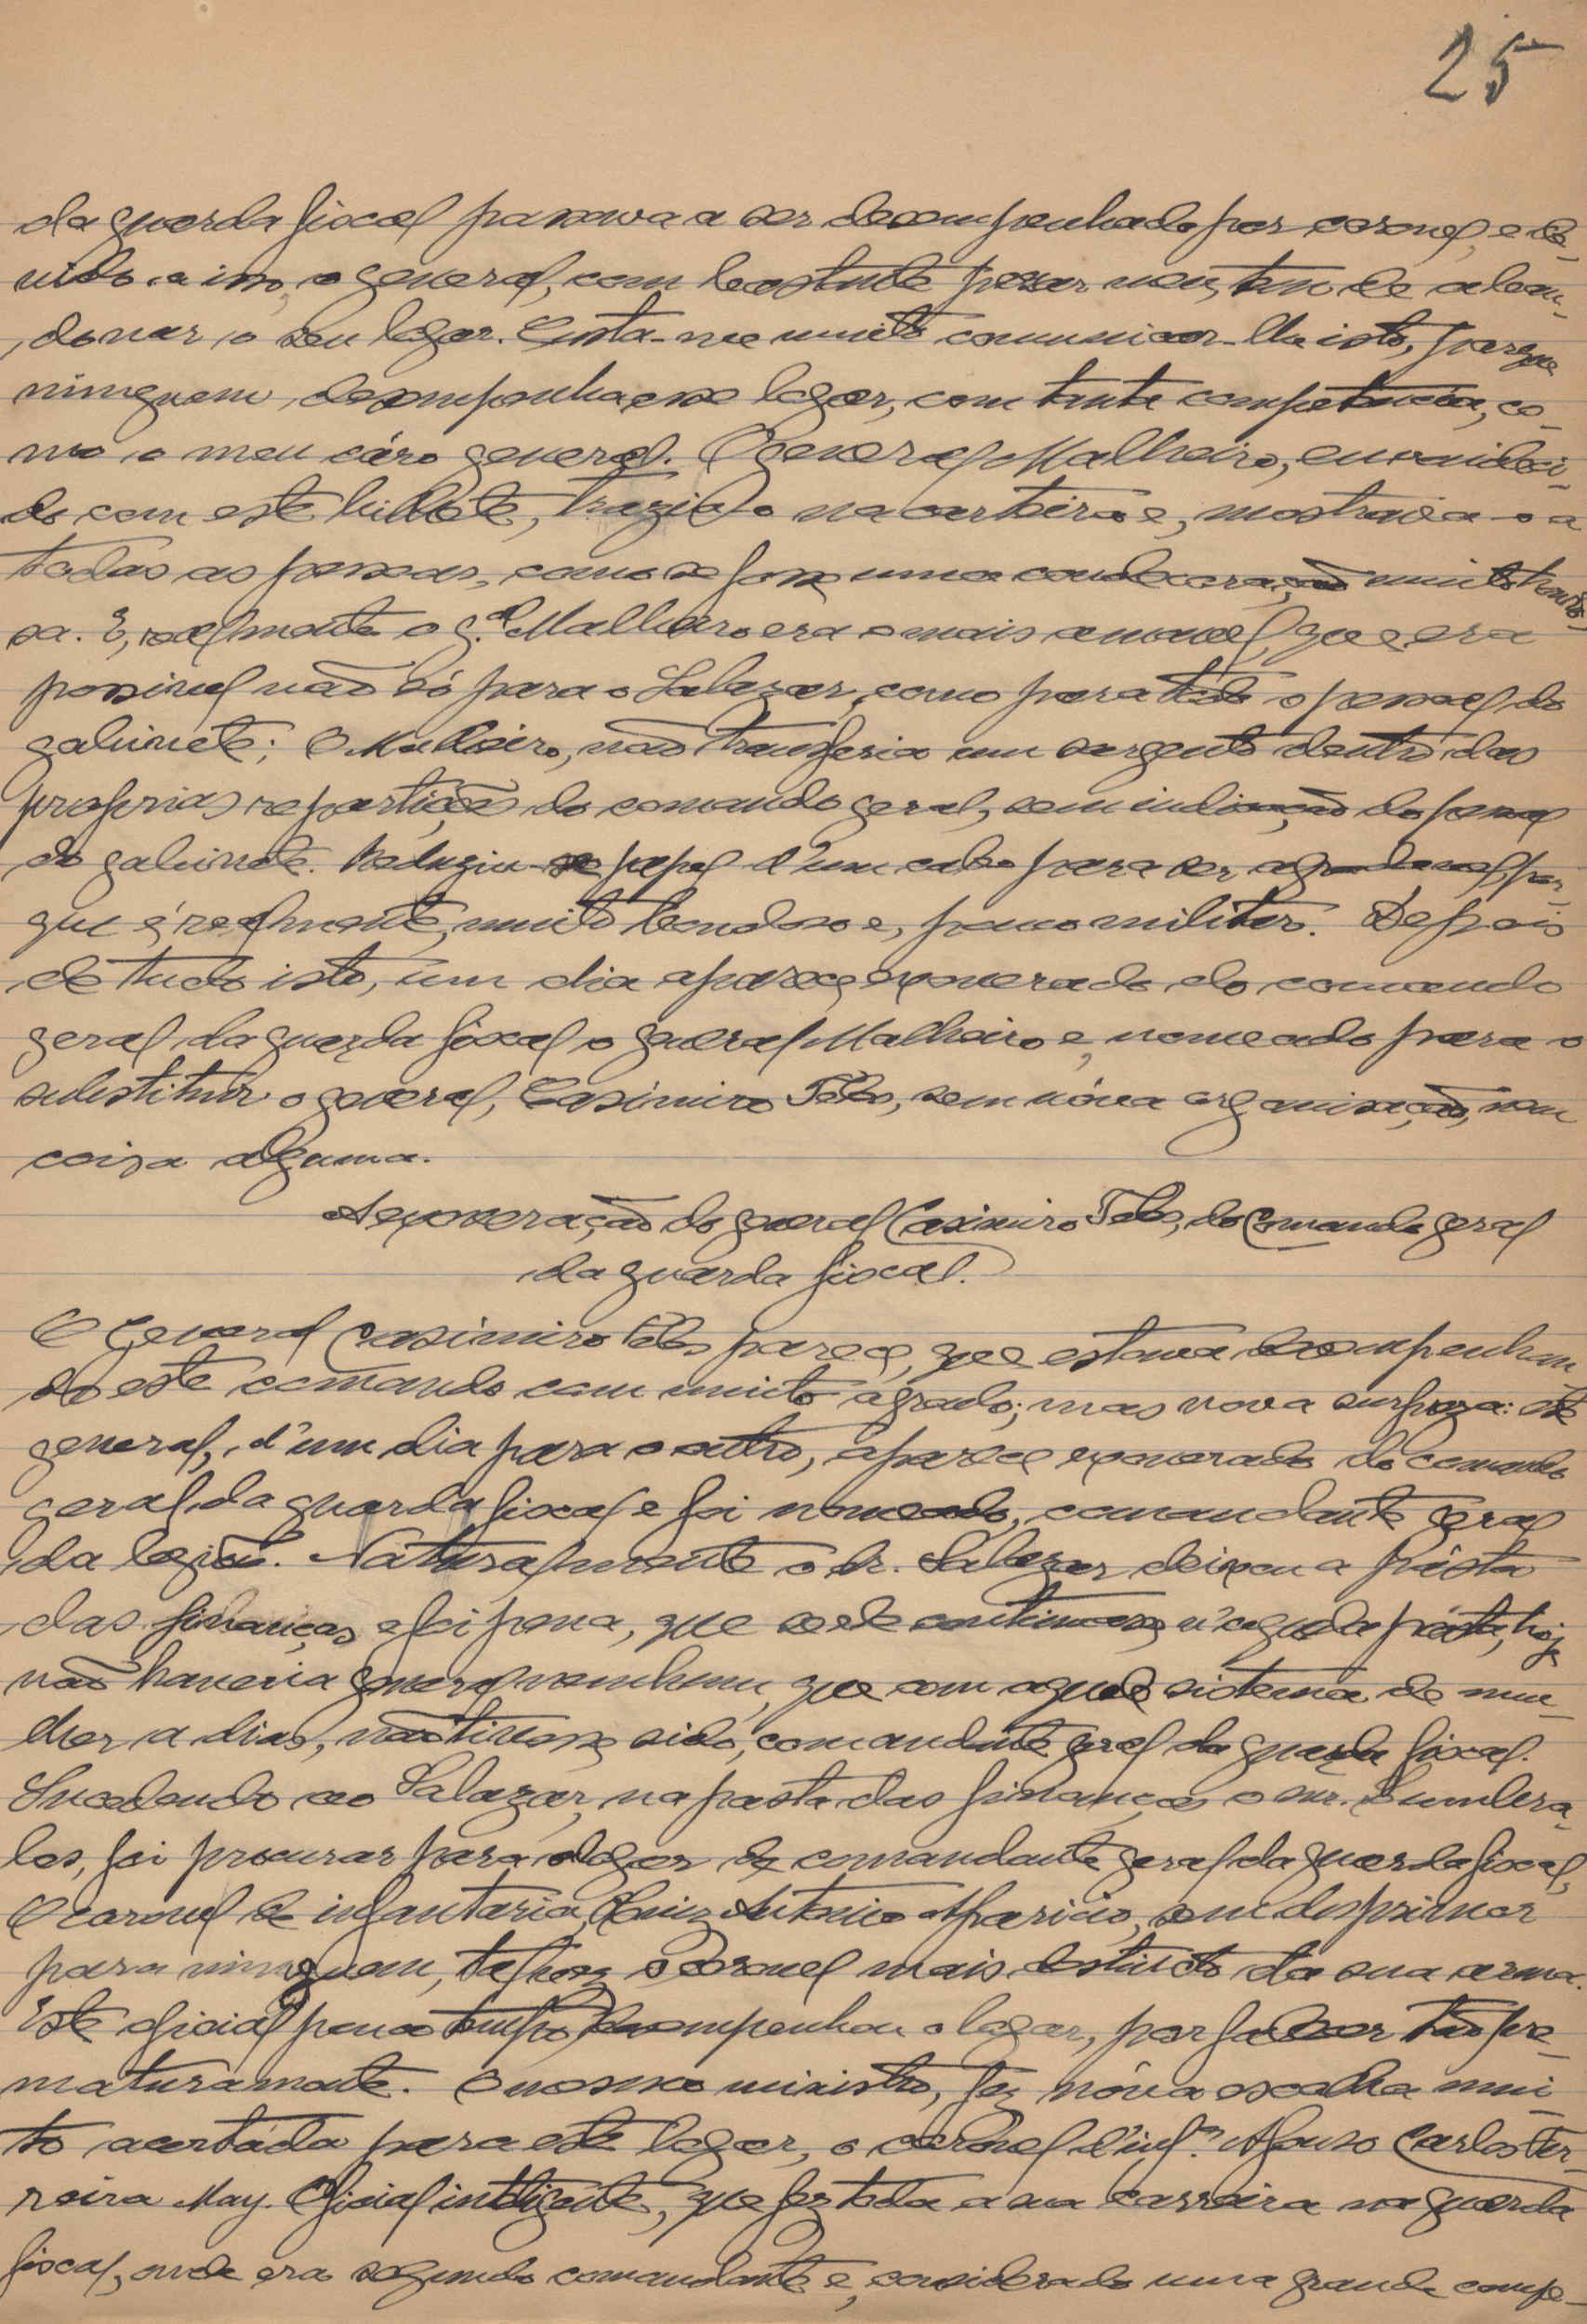 25
da guarda fiscal passava a ser desempenhado por coronel, e de-
vido a isso, o general, com bastante pezar meu, tem de aban-
donar o seu logar. Custa-me muito comunicar-lhe isto, porque
ninguem desempenha esse logar, com tanta competencia, co-
mo o meu cáro general. O general Malheiro, envaideci-
do com este bilhete, trazia-o na carteira e, mostrava-o a
todas as pessoas, como se fosse uma condecoração muito honro-
sa. E, realmente o g.al Malheiro era o mais amavel, que era
possivel não só para o Salazar, como para todo o pessoal do
gabinete; O Malheiro, não transferia um sargento dentro das
proprias repartições do comando geral, sem indicação do pessoal
do gabinete. Reduziu-se papel d'um cabo para ser agradavel, por-
que é realmente, muito bondoso e, pouco militar. Depois
de tudo isto, um dia aparece exonerado do comando
geral da guarda fiscal o general Malheiro e, nomeado para o
substituir o general, Casimiro Teles, sem nóva organisação, nem
coisa alguma.
A exoneração do general Casimiro Teles, do Comando geral
da guarda fiscal.
O General Casimiro Teles parece, que estava desempenhan-
do este comando com muito agrado; mas nova surpreza: este
general, d'um dia para o outro, aparece exonerado do Comando
geral da guarda fiscal e foi nomeado, comandante geral
da legião. Naturalmente o dr. Salazar deixou a pásta
das finanças e foi pena, que se ele continuasse n'aquela pásta, hoje
não haveria general nenhum, que com aquele sistema de mu-
lher a dias, não tivesse sido, comandante geral da guarda fiscal.
Sucedendo ao Salazar, na pasta das finanças o snr. Lumbra-
les, foi procurar para o logar de comandante geral da guarda fiscal,
O coronel de infantaria, Luiz Antonio Aparicio, sem desprimor
para ninguem, talvez o Coronel mais destincto da sua arma.
Este oficial pouco tempo desempenhou o logar, por falecer tão pre-
maturamente. O nosso ministro, fez nóva escolha mui-
to acertáda para este logar, o coronel d'inf.a Afonso Carlos Fer-
reira May. Oficial inteligente, que fez toda a sua carreira na guarda
fiscal, onde era segundo comandante e, considerado uma grande compe-